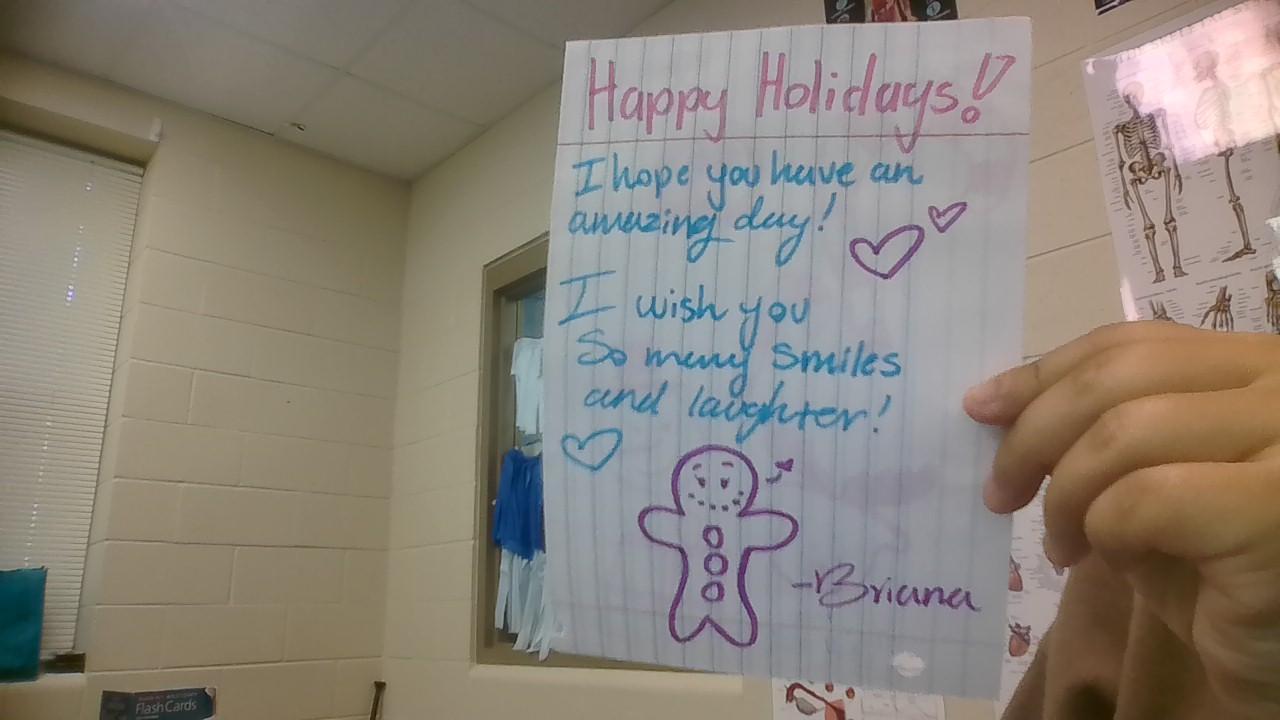 Happy Holidays!
I hope you have an
amazing day!
I wish you
So many smiles
and laughter!
-Briana
Flash Cards